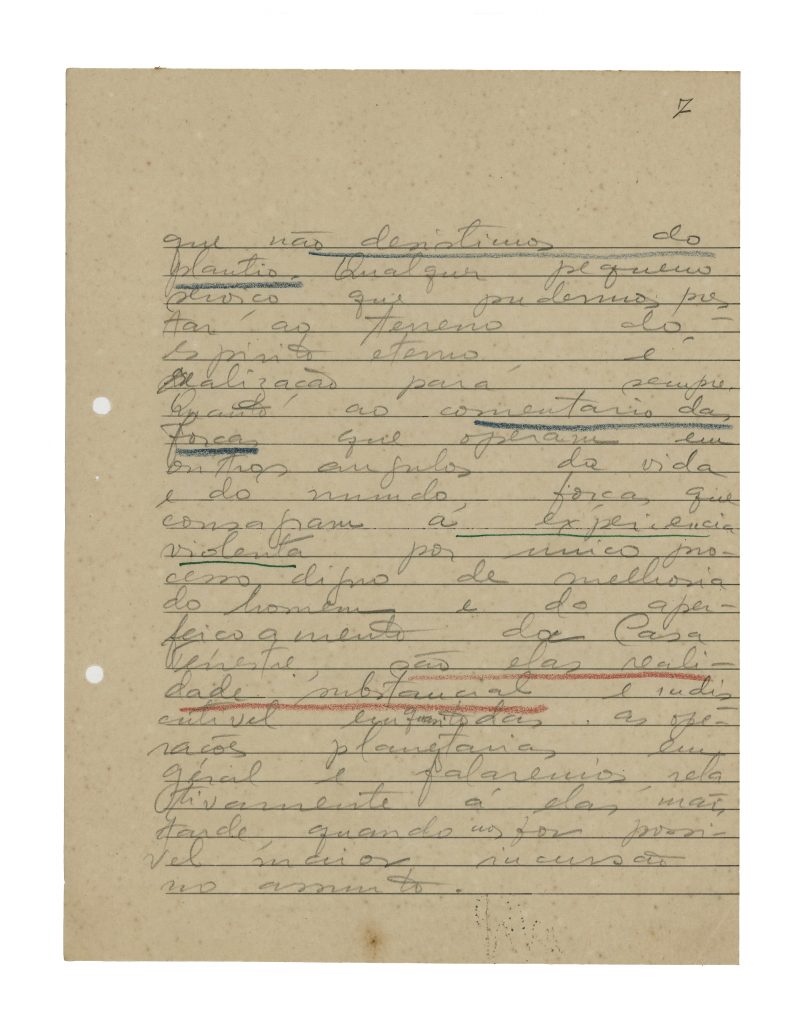 7
que não desistimos do
plantio. Qualquer pequeno
serviço que pudermos pres
tar ao terreno do
Espirito eterno é
realização para sempre.
Quanto ao comentario das
forças que operam em
outros angulos da vida
e do mundo, forças que
consagram á experiencia
violenta por unico pro-
cesso digno de melhoria
do homem e do aper-
feiçoamento da Casa
Terrestre, são elas reali-
dade substancial e indis
cutivel em quasi todas as ope-
rações planetarias em
geral e falaremos rela
tivamente á elas mais
tarde quando nos for possi-
vel maior incursão
no assunto.